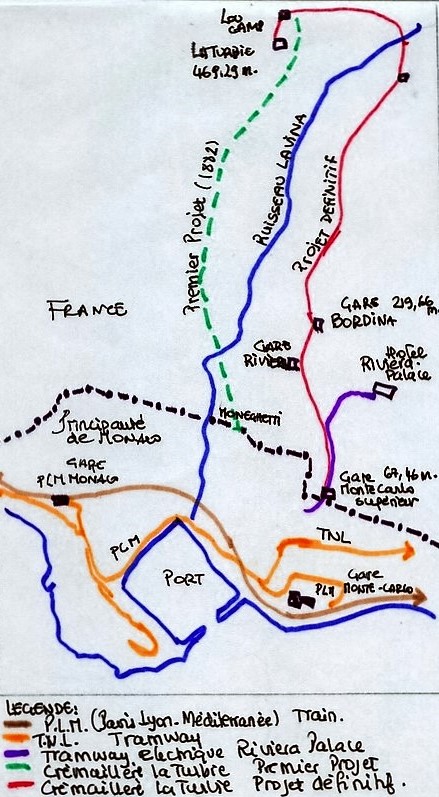 LOU
CAMP
LA TURBIE
469,29 m.
Premier Projet (1882)
RUISSEAU LAVINA
PROJET DEFINITIF
FRANCE
GARE 219,66 m
BORDINA
GARE
RIVIERA
Hotel
Riviera-
Palace
MONEGHETTI
Principauté
de MONACO
GARE
PLM MONACO
Gare 67,46 m.
Monte Carlo
superieur
PLM
PORT
TNL
Gare
PLM MONTE-CARLO
LEGENDE:
P.L.M. (Paris Lyon-Méditerranée) Train.
T.N.L. Tramway
Tramway electrique Riviera Palace
Crémaillère la Turbie Premier Projet
Crémaillère la Turbie Projet définitif.